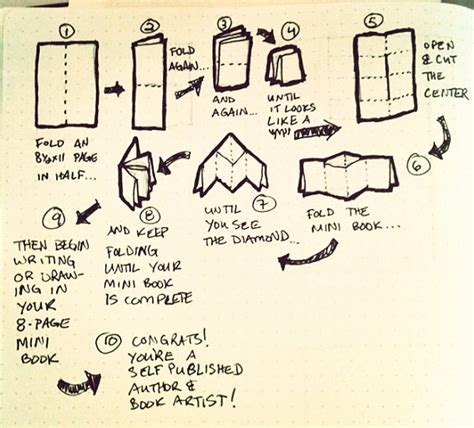 1
FOLD AN
8½x11 PAGE
IN HALF...
2
FOLD
AGAIN...
3
AND
AGAIN...
4
UNTIL
IT LOOKS
LIKE A
5
OPEN
& CUT
THE
CENTER
6
FOLD THE
MINI BOOK...
7
UNTIL
YOU SEE
THE DIAMOND...
8
AND KEEP
FOLDING
UNTIL YOUR
MINI BOOK
IS COMPLETE
9
THEN BEGIN
WRITING
OR DRAW-
ING IN
YOUR
8-PAGE
MINI
BOOK
10
CONGRATS!
YOU'RE A
SELF PUBLISHED
AUTHOR &
BOOK ARTIST!